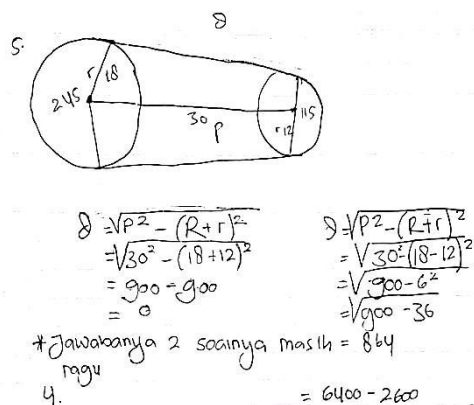 ∂
5.
r 18
245
30
P
115
r 12
∂ = √P² - (R+r)²
= √30² - (18+12)²
= 900 - 900
= 0
∂ = √P² - (R-r)²
= √30² - (18-12)²
= √900 - 6²
= √900 - 36
*Jawabanya 2 soalnya masih = 864
ragu
4.
= 6400 - 2600